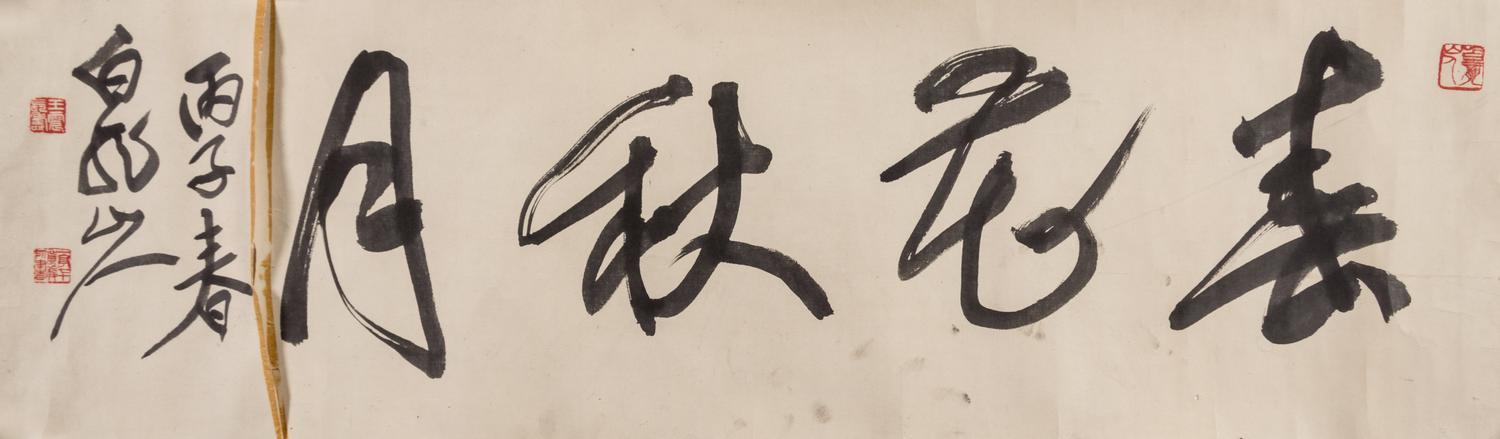 春花秋月
丙子春
白龍山人
王震